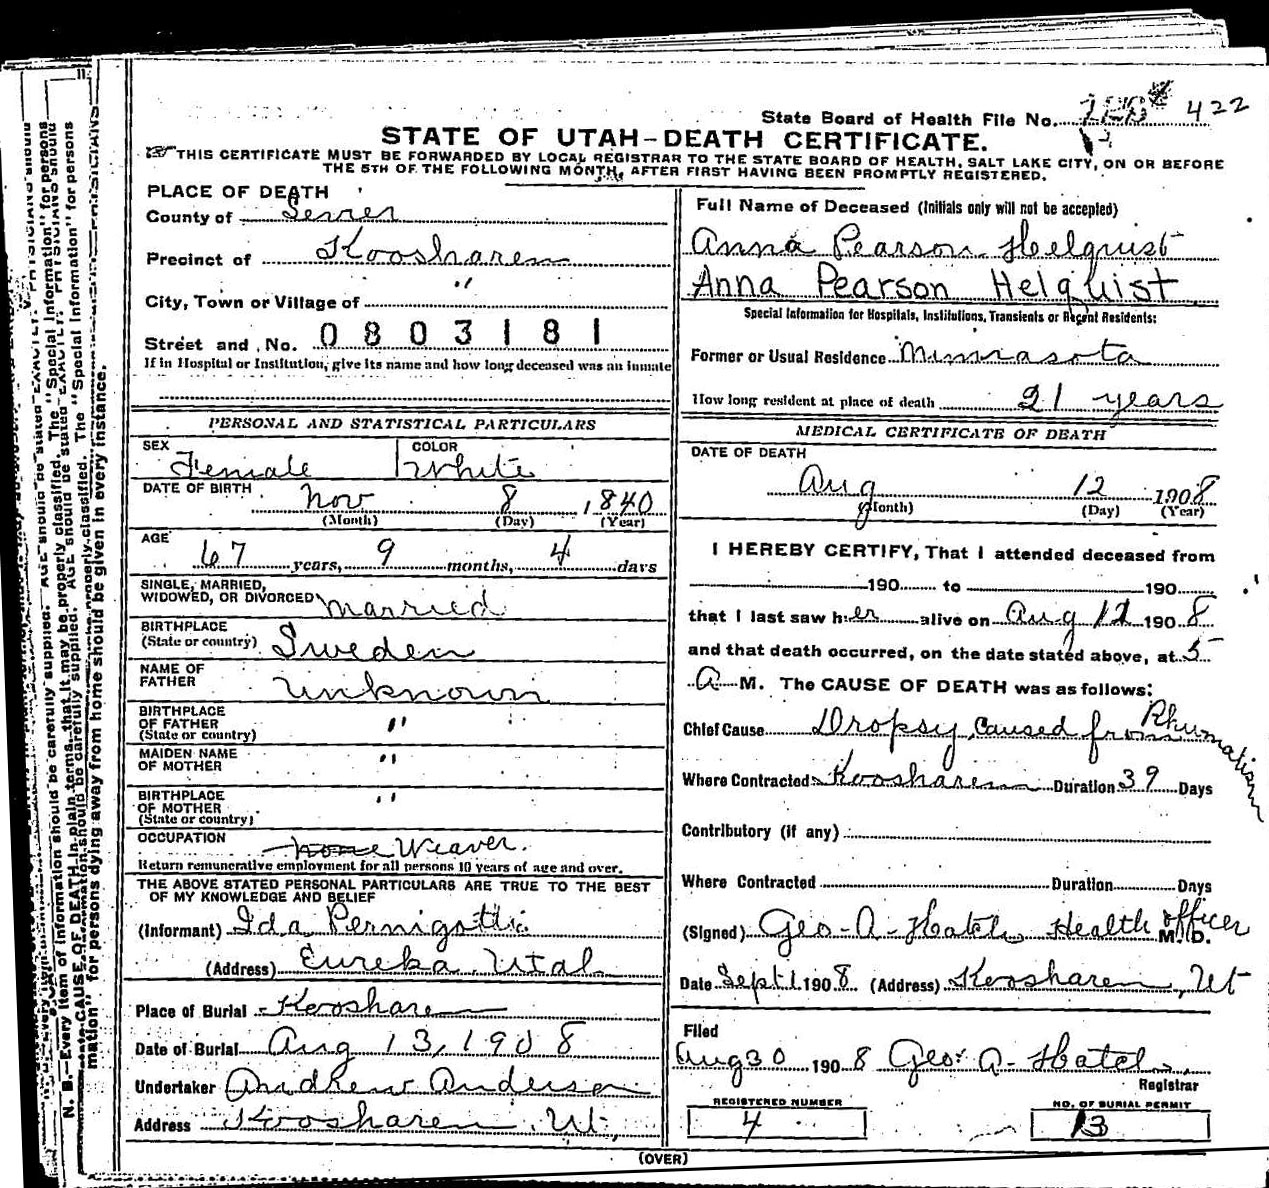 State Board of Health File No. 422
STATE OF UTAH-DEATH CERTIFICATE.
THIS CERTIFICATE MUST BE FORWARDED BY LOCAL REGISTRAR TO THE STATE BOARD OF HEALTH, SALT LAKE CITY, ON OR BEFORE
THE 5TH OF THE FOLLOWING MONTH, AFTER FIRST HAVING BEEN PROMPTLY REGISTERED.
PLACE OF DEATH
County of Sevier
Precinct of Koosharem
City, Town or Village of "
Street and No. 0803181
If in Hospital or Institution, give its name and how long deceased was an inmate
PERSONAL AND STATISTICAL PARTICULARS
SEX Female COLOR White
DATE OF BIRTH Nov 8 1840
(Month) (Day) (Year)
AGE 67 years, 9 months, 4 days
SINGLE, MARRIED,
WIDOWED, OR DIVORCED Married
BIRTHPLACE
(State or country) Sweden
NAME OF
FATHER Unknown
BIRTHPLACE
OF FATHER "
(State or country)
MAIDEN NAME
OF MOTHER "
BIRTHPLACE
OF MOTHER "
(State or country)
OCCUPATION none Weaver.
Return remunerative employment for all persons 10 years of age and over.
THE ABOVE STATED PERSONAL PARTICULARS ARE TRUE TO THE BEST
OF MY KNOWLEDGE AND BELIEF
(Informant) Ida Pernigotti
(Address) Eureka Utah
Place of Burial Koosharem
Date of Burial Aug 13, 1908
Undertaker Andrew Anderson
Address Koosharem, Ut,
Full Name of Deceased (Initials only will not be accepted)
Anna Pearson Helquist
Anna Pearson Helquist
Special Information for Hospitals, Institutions, Transients or Recent Residents:
Former or Usual Residence Minnasota
How long resident at place of death 21 years
MEDICAL CERTIFICATE OF DEATH
DATE OF DEATH
Aug 12 1908
(Month) (Day) (Year)
I HEREBY CERTIFY, That I attended deceased from
190 to 190
that I last saw her alive on Aug 12 1908
and that death occurred, on the date stated above, at 5
A M. The CAUSE OF DEATH was as follows:
Chief Cause Dropsy, caused from Rhumatism
Where Contracted Koosharem Duration 39 Days
Contributory (if any)
Where Contracted Duration Days
(Signed) Geo. A. Hatch Health officer M. D.
Date Sept 1 1908 (Address) Koosharem, Ut
Filed
Aug 30 1908 Geo. A. Hatch,
Registrar
REGISTERED NUMBER
4
NO. OF BURIAL PERMIT
13
(OVER)